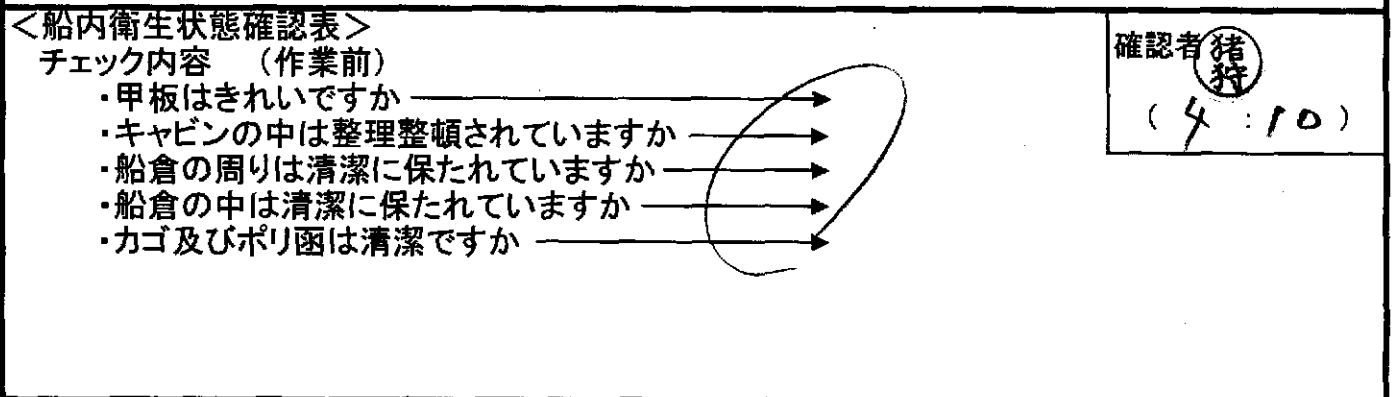 <船内衛生状態確認表>
チェック内容 (作業前)
・甲板はきれいですか
・キャビンの中は整理整頓されていますか
・船倉の周りは清潔に保たれていますか
・船倉の中は清潔に保たれていますか
・カゴ及びポリ函は清潔ですか
確認者 猪狩
(4:10)